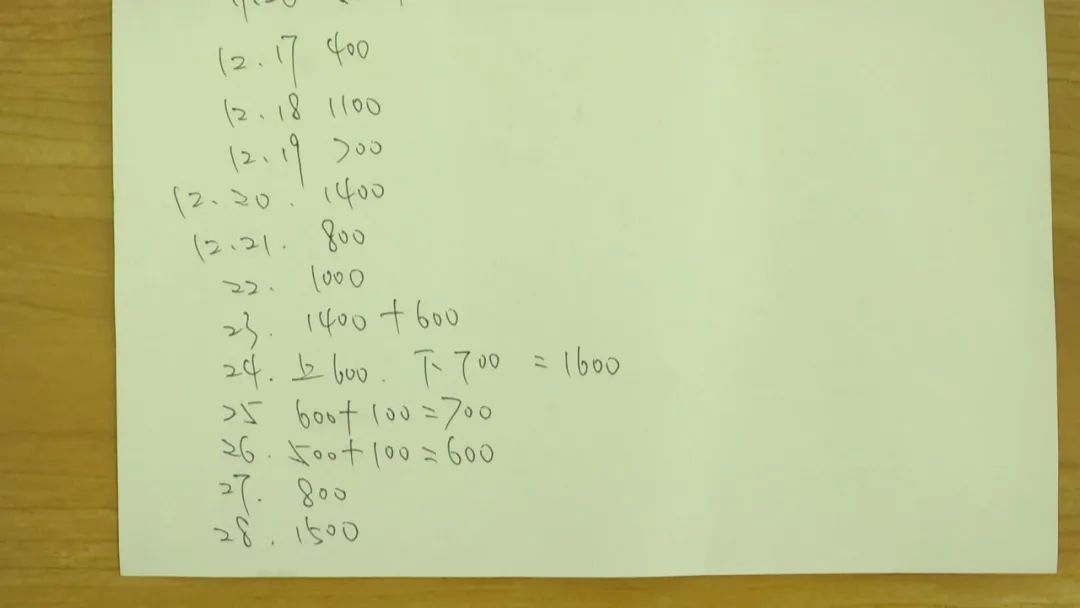 12.17 400
12.18 1100
12.19 700
12.20. 1400
12.21. 800
22. 1000
23. 1400+600
24. 上600. 下700 =1600
25 600+100=700
26. 500+100=600
27. 800
28. 1500